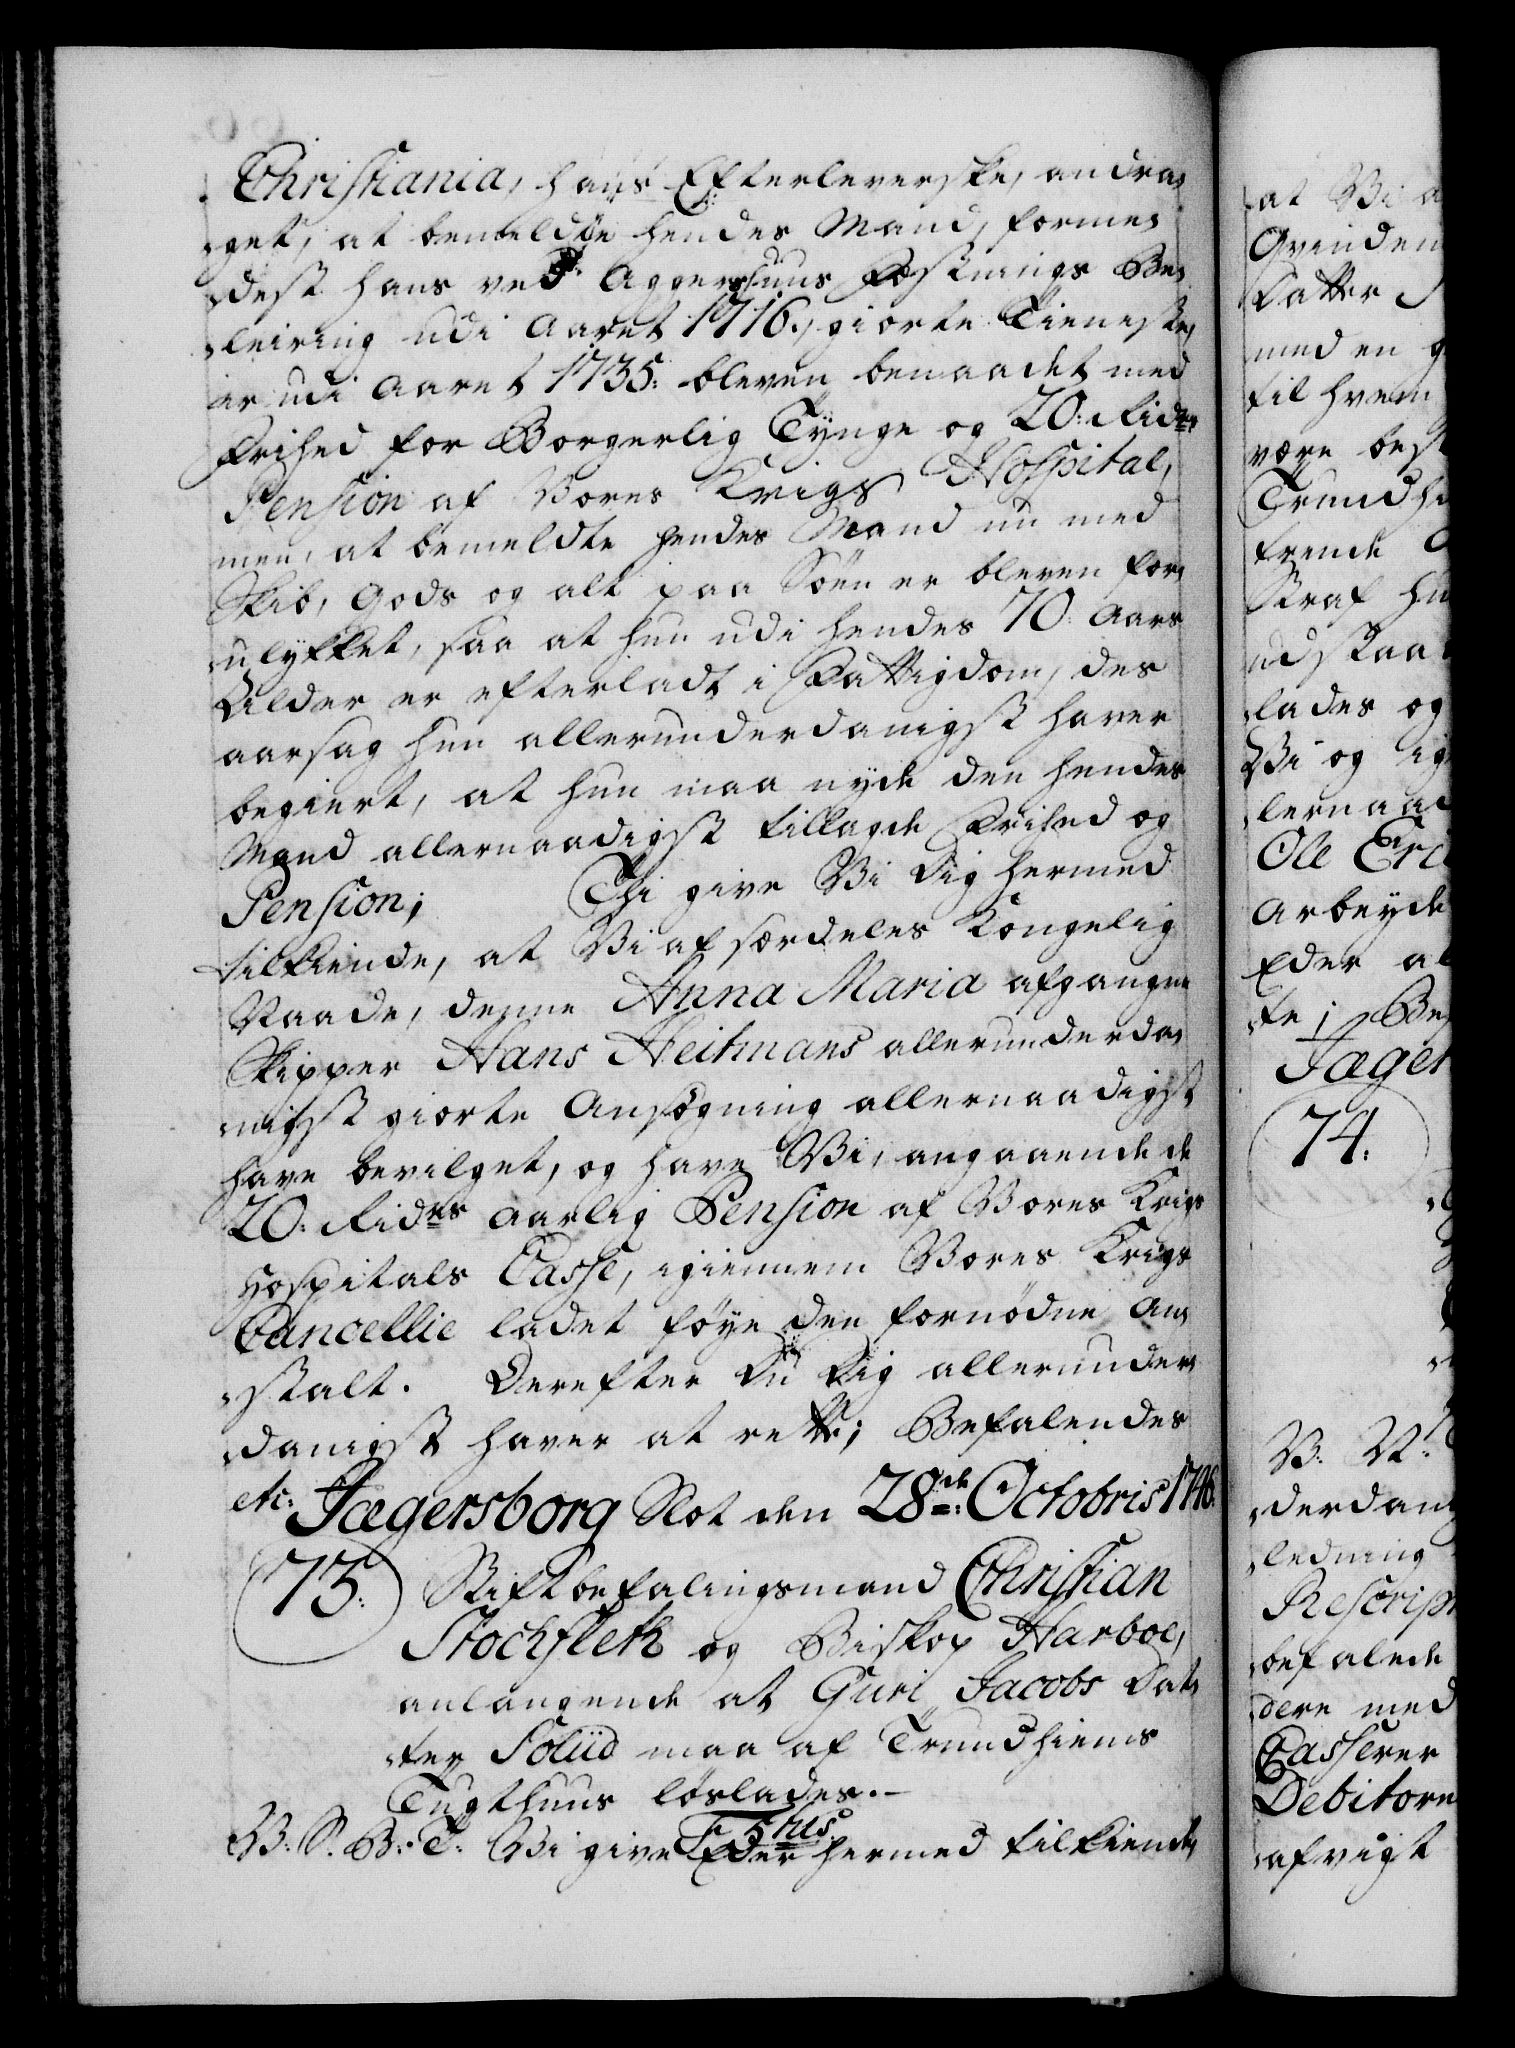 Christiania, hans Efterleverske, andra¬
get, at bemeldte hendes Mand, forme¬
delst hans ved Aggershuus Fæstnings Be¬
leiring udi Aaret 1716., giorte Tieneste,
er udi Aaret 1735: bleven benaadet med
Frihed for Borgerlig Tynge og 20: Rider
Pension af Vores Krigs Hospital,
men, at bemeldte hendes Mand nu med
Skib, Gods og alt paa Söen er bleven for¬
ulykket, saa at hun udi hendes 70: Aars
Alder er efterladt i Fattigdom, des
aarsag hun allerunderdanigst haver
begiert, at hun maa nyde den hendes
Mand allernaadigst tillagde Frihed og
Pension; Thi give Vi Dig hermed
tilkiende, at Vi af særdeles Kongelig
Naade, denne Anna Maria afgangne
Skipper Hans Heitmans allerunderda¬
nigst giorte Ansögning allernaadigst
have bevilget, og have Vi, angaaende de
20: Ridrs aarlig Pension af Vores Krigs
Hospitals Casse, igiennem Vores Krigs
Cancellie ladet föye den fornödne An¬
stalt. Derefter Du Dig allerunder¬
danigst haver at rette; Befalendes
etc: Jægersborg Slot den 28de: Octobris 1746.
73: Stiftbefalingsmand Christian
Stochfleth og Biskop Harboe,
anlangende at Guri Jacobs Dat¬
ter Soliid maa af Trundhiems
Tugthuus löslades.-
V: S. B: T: Vi give Eder hermed tilkiende,
at Vi a
Qvinden
Fatter
med en g
til hvem
være best
Trundhi
trende
Straf hu
udstaa
lades og
Vi og ig
lernaad
Ole Eric
Arbeyde
Eder al
te; Be
Jæger
74:
V: V:
derdan
ledning
Rescript
befalede
dere med
Casserer
Debitore
afvigt